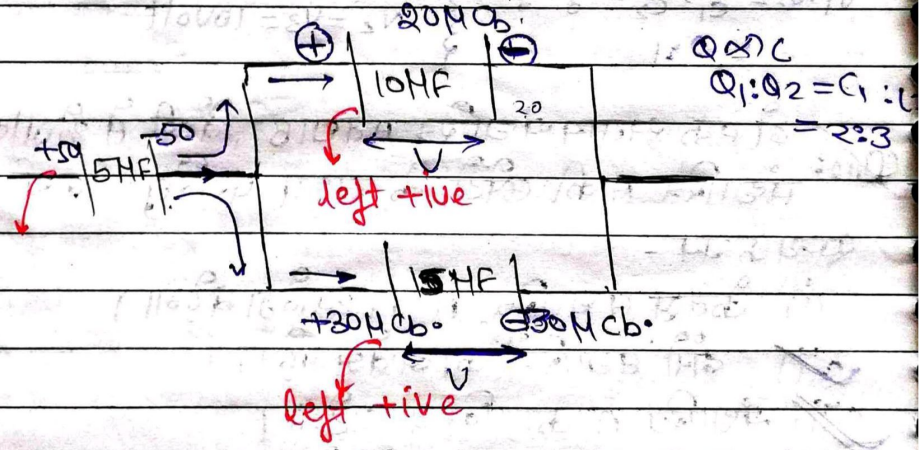 20μCb.
+ -
Q ∝ C
10μF
Q1:Q2 = C1 :
20
= 2:3
+50 -50
5μF
V
left +ive
15μF
+30μCb. -30μCb.
V
left +ive